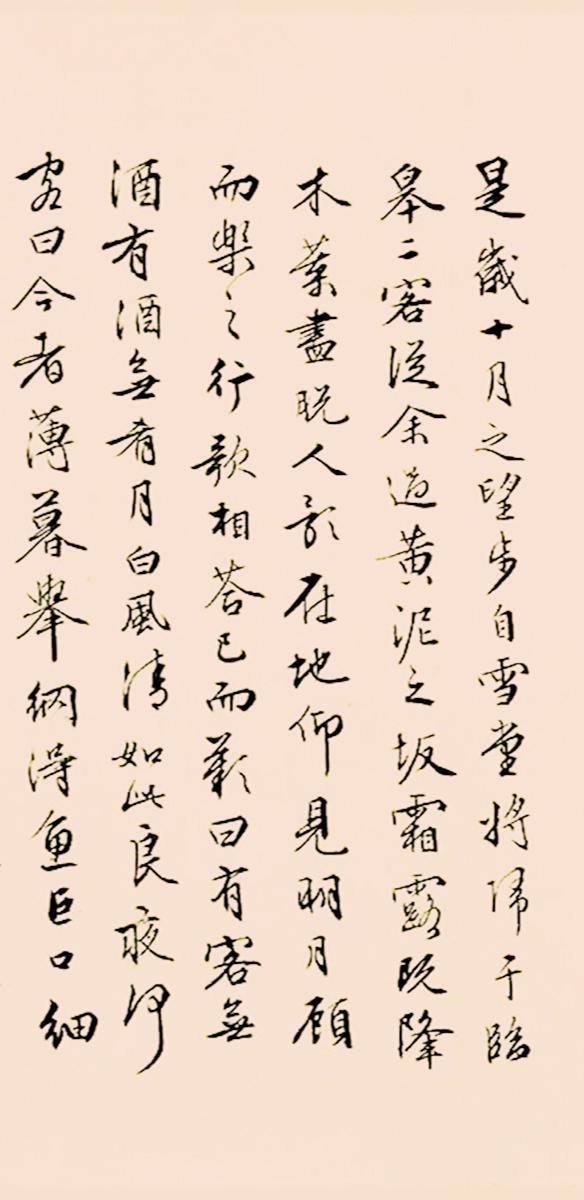 是歲十月之望步自雪堂將歸于臨
皋二客從余過黃泥之坂霜露既降
木葉盡脫人影在地仰見明月顧
而樂之行歌相荅已而歎曰有客無
酒有酒無肴月白風清如此良夜何
客曰今者薄暮舉網得魚巨口細